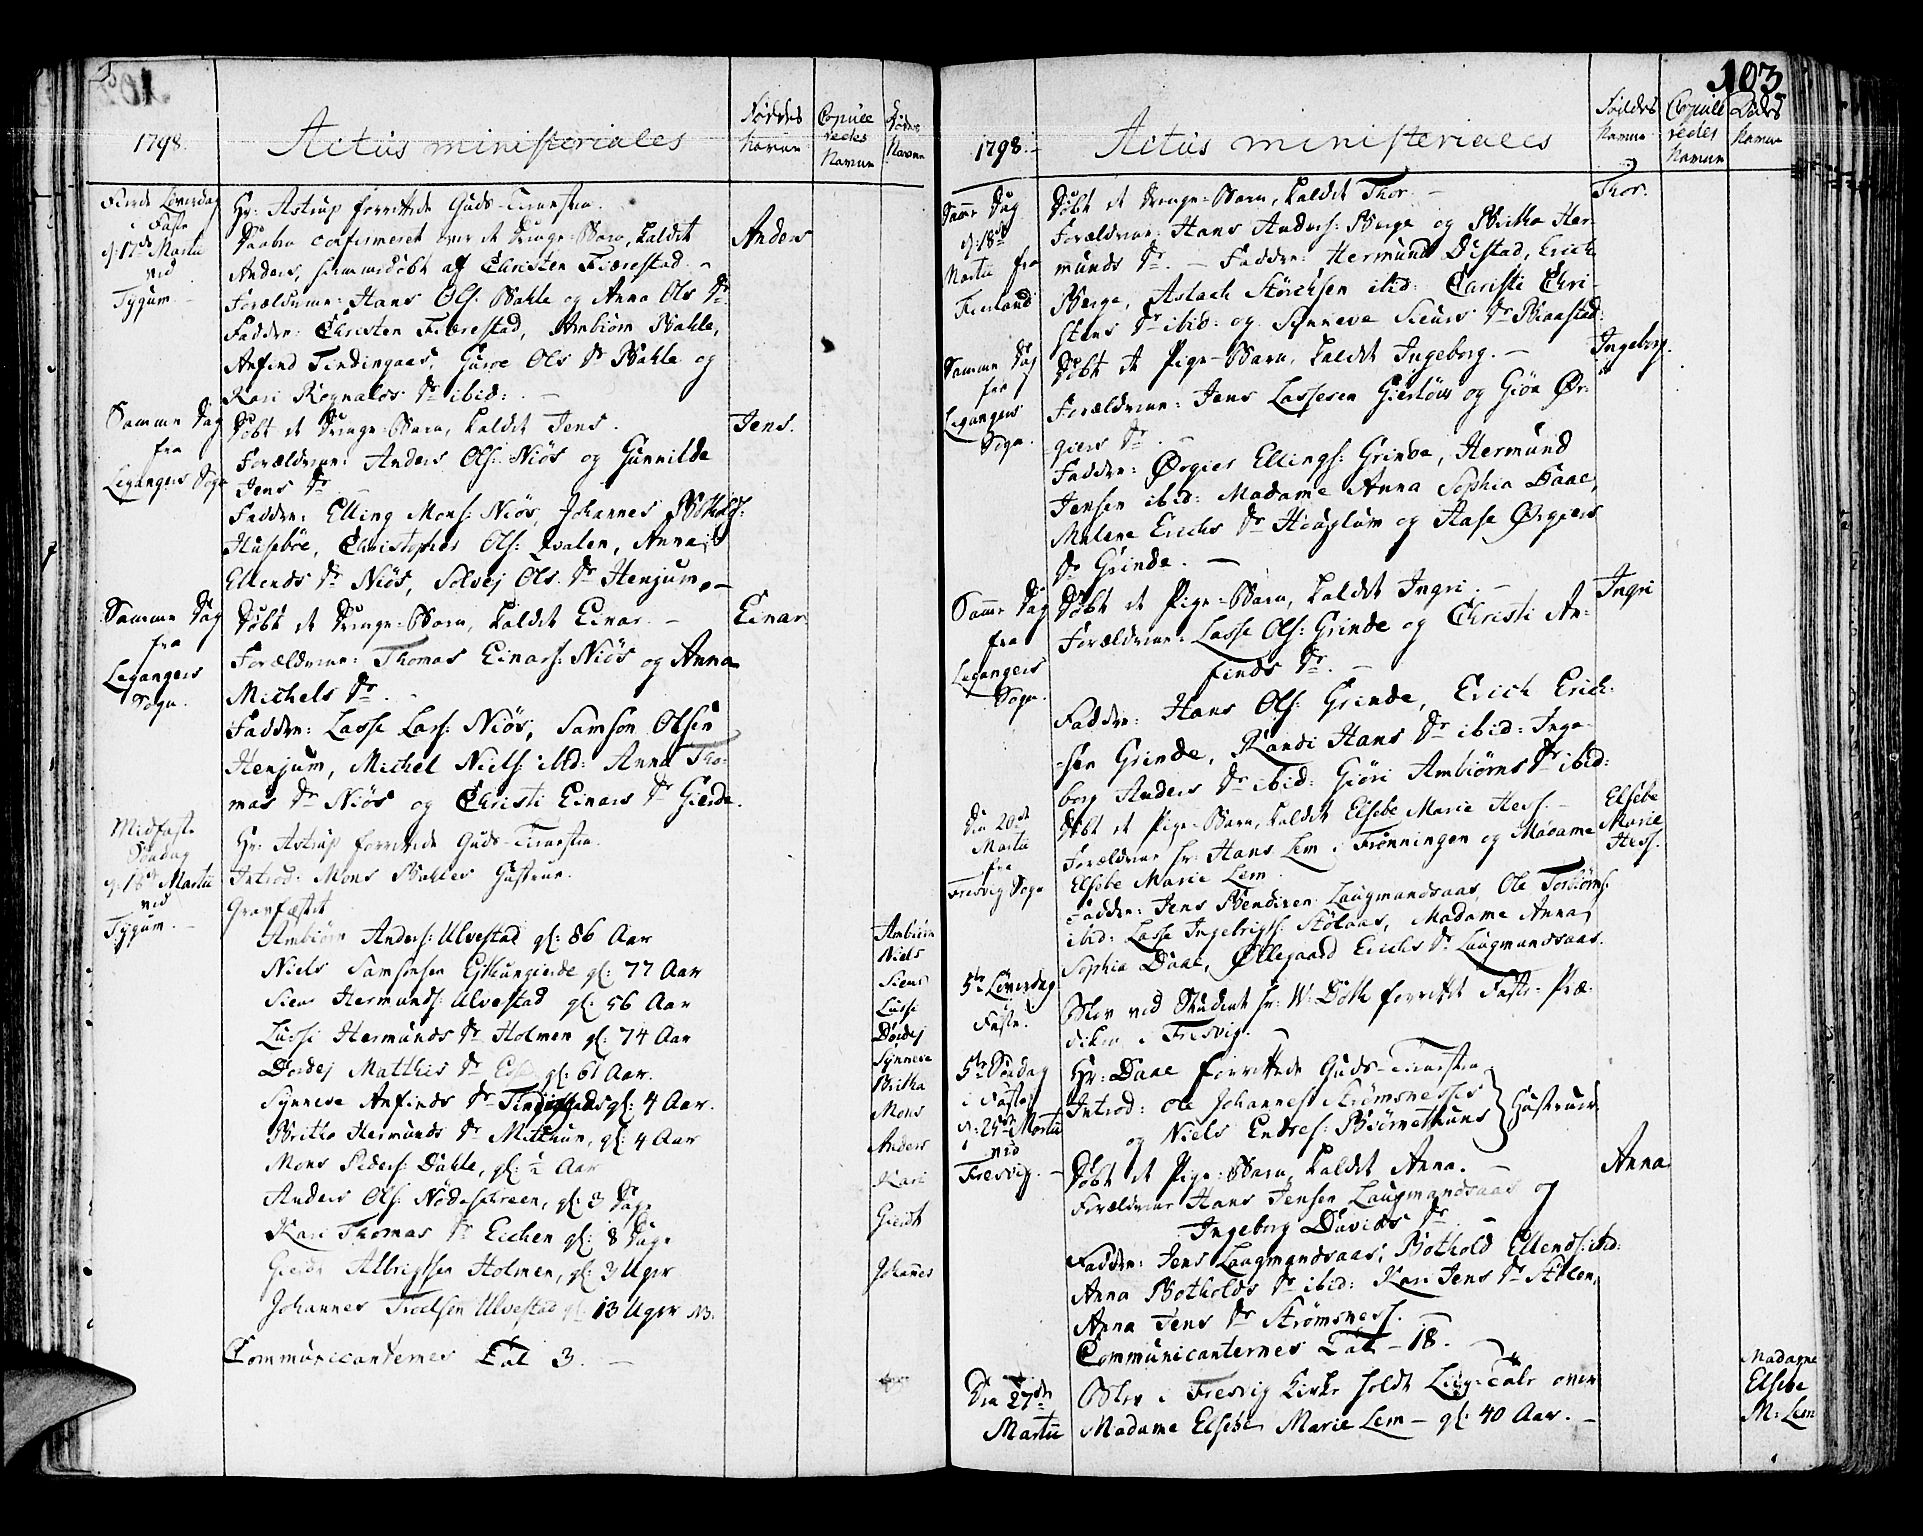 1798.
Actus ministeriales
Føddes Navne
Copuleredes Navne
Dødes Navne
Fierde Løverdag i Faste
d: 17de Martii
ved
Tygum
Hr: Astrup forrettede Guds-Tienesten.
Daaben confirmeret over et Drenge-Barn, kaldet
Anders
Anders, hiemmedøbt af Christen Fiærestad.
Forældrene: Hans Ols: Bahle og Anna Ols Dr.
Faddere: Christen Fiærestad, Ambiørn Bahle,
Anfind Tendingaas, Guroe Ols Dr Bahle og
Kari Rognalds Dr ibid:
Samme Dag
fra
Leganger Sogn
Døbt et Drenge-Barn, kaldet Jens.
Jens.
Forældrene: Anders Ols: Niøs og Gunnilde
Jens Dr
Faddere: Elling Mons: Niøs, Johannes Botholds:
Husebøe, Christopher Ols: Qvalen, Anna
Ellends Dr Niøs, Solvej Ols Dr Henjum. —
Samme Dag
fra
Legangers
Sogn.
Døbt et Drenge-Barn, kaldet Einar. —
Einar
Forældrene: Thomas Einars: Niøs og Anna
Michels Dr.
Faddere: Lasse Lars: Niøs, Samson Olsen
Henjum, Michel Niels: ibid: Anna Tho-
mas Dr Niøs og Christi Einars Dr Gierde.
Midfaste
Søndag
d: 18de Martii
ved
Tygum. —
Hr: Astrup forrettede Guds-Tienesten.
Introd: Mons Bahles Hustrue.
Gravfæstet
Ambiørn Anders: Ulvestad gl: 86 Aar
Ambiørn
Niels Samsonsen gl: 77 Aar
Niels
Siens Hermunds: Ulvestad gl: 56 Aar
Siens
Lussi Hermunds Dr Holmen gl: 74 Aar
Lussi
Dordej Matthis Dr gl: 61 Aar.
Dordej
Synneve Anfinds Dr gl: 4 Aar.
Synneve
Britha Hermunds Dr Mitthun, gl: 4 Aar
Britha
Mons Peders: Dahle, gl: ½ Aar
Mons
Anders Ols: Nødeseteren, gl: 3 Dage
Anders
Kari Thomas Dr Eichen gl: 8 Dage
Kari
Albrigtsen Holmen, gl: 3 Uger
Johannes Troelsen Ulvestad gl: 13 Uger
Johannes
Communicanternes Tal 3. —
103
1798. —
Actus ministeriales
Føddes Navne
Copuleredes Navne
Dødes Navne
Samme Dag
d: 18de
Martii fra
Fierland
Døbt et Drenge-Barn, kaldet Thor. —
Thor.
Forældrene: Hans Anders: Berge og Britha Her-
munds Dr. — Faddere: Hermund Distad, Erich
Berge, Aslach Størchsen ibid: Christi Chri-
stens Dr ibid: og Synneve Siurs Dr
Samme Dag
fra
Legangers
Sogn.
Døbt et Pige-Barn, kaldet Ingeborg. —
Ingeborg.
Forældrene: Jens Lassesen Gierløw og Giøa Ør-
giers Dr.
Faddere: Ørgier Ellings: Grinde, Hermund
Jensen ibid: Madame Anna Sophia Daae,
Malene Erichs Dr Houglum og Aase Ørgiers
Dr Grinde. —
Samme Dag
fra
Legangers
Sogn.
Døbt et Pige-Barn, kaldet Ingri. —
Ingri
Forældrene: Lasse Ols: Grinde og Christi An-
finds Dr. —
Faddere: Hans Ols: Grinde, Erich Erich-
sen Grinde, Randi Hans Dr ibid: Inge-
borg Anders Dr ibid: Giøri Ambiørns Dr ibid:
Den 20de
Martii
fra
Fresvig Sogn
Døbt et Pige-Barn, kaldet Elsebe Marie Hess. —
Elsebe
Marie
Hess.
Forældrene Hr: Hans Lem i Frønningen og Madame
Elsebe Marie Lem.
Faddere: Jens Bendixen Laugmandsaas, Ole Torbiørns:
ibid: Lasse Ingebrigts: Stølaas, Madame Anna
Sophia Daae, Øllegaard Erichs Dr Laugmandsaas.
5te Løverdag
i Faste.
Blev ved Student Hr: W: Dothe forrettet Faste-Præ-
diken i Fresvig.
5te Søndag
i Faste
d: 25de Martii
ved
Fresvig. —
Hr: Daae forrettede Guds-Tienesten
Introd: Ole Johannes: Strømsnesses
og Niels Endres: Biørnethuns
Hustruer
Døbt et Pige-Barn, kaldet Anna. —
Anna
Forældrene Hans Jensen Laugmandsaas og
Ingeborg Davids Dr. —
Faddere: Jens Laugmandsaas, Bothold Ellends: ibid:
Anna Botholds Dr ibid: Kari Jens Dr Stølen,
Anna Jens Dr Strømsness. —
Communicanternes Tal – 18.
Den 27de
Martii
Blev i Fresvig Kirke holdt Liig-Tale over
Madame Elsebe Marie Lem — gl: 40 Aar. —
Madame
Elsebe
M: Lem